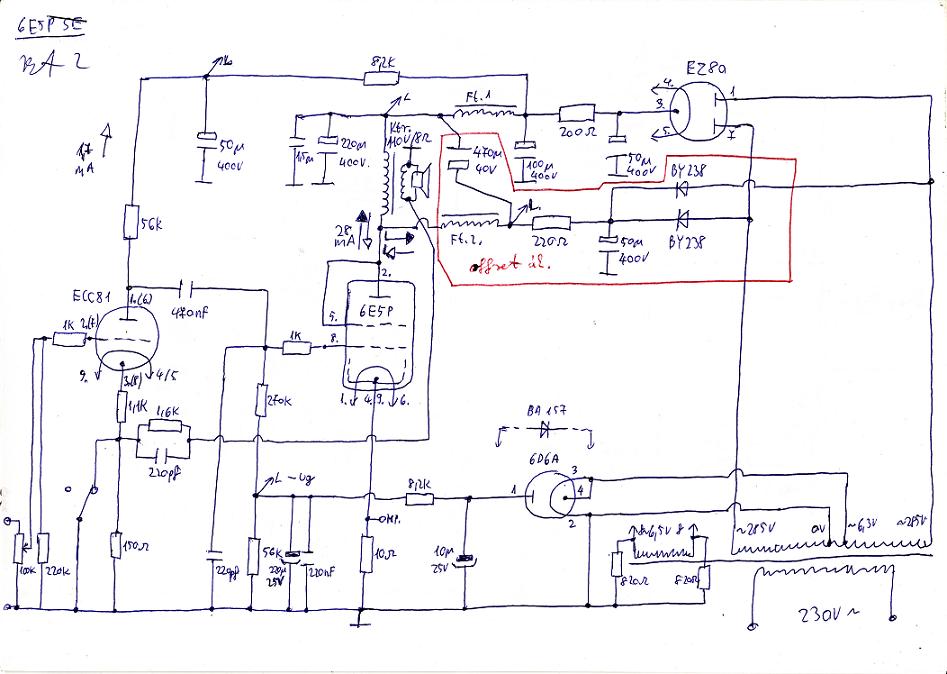 6E5P SE
EZ80
8,2K
4.
1
Ft.1
3.
200Ω
5
7
50µ
400V
1,5µ
220µ
400V.
110V/8Ω
470µ
40V
100µ
400V
50µ
400V
BY238
17
mA
56K
28
mA
Ft.2.
220Ω
50µ
400V
BY238
2.
ECC81
1.(6)
470nf
6E5P
1K
2.(7)
5.
1K
8.
9.
3.(8)
4/5
1. 4. 9. 6.
1,1K
270K
1,6K
220pf
BA157
6D6A
3
4
1
2
-Ug
8,2K
~285V
0V
~6,3V
~285V
~6,5V
100K
220K
150Ω
220pf
56K
220µ
25V
220nF
10Ω
10µ
25V
820Ω
820Ω
230V~